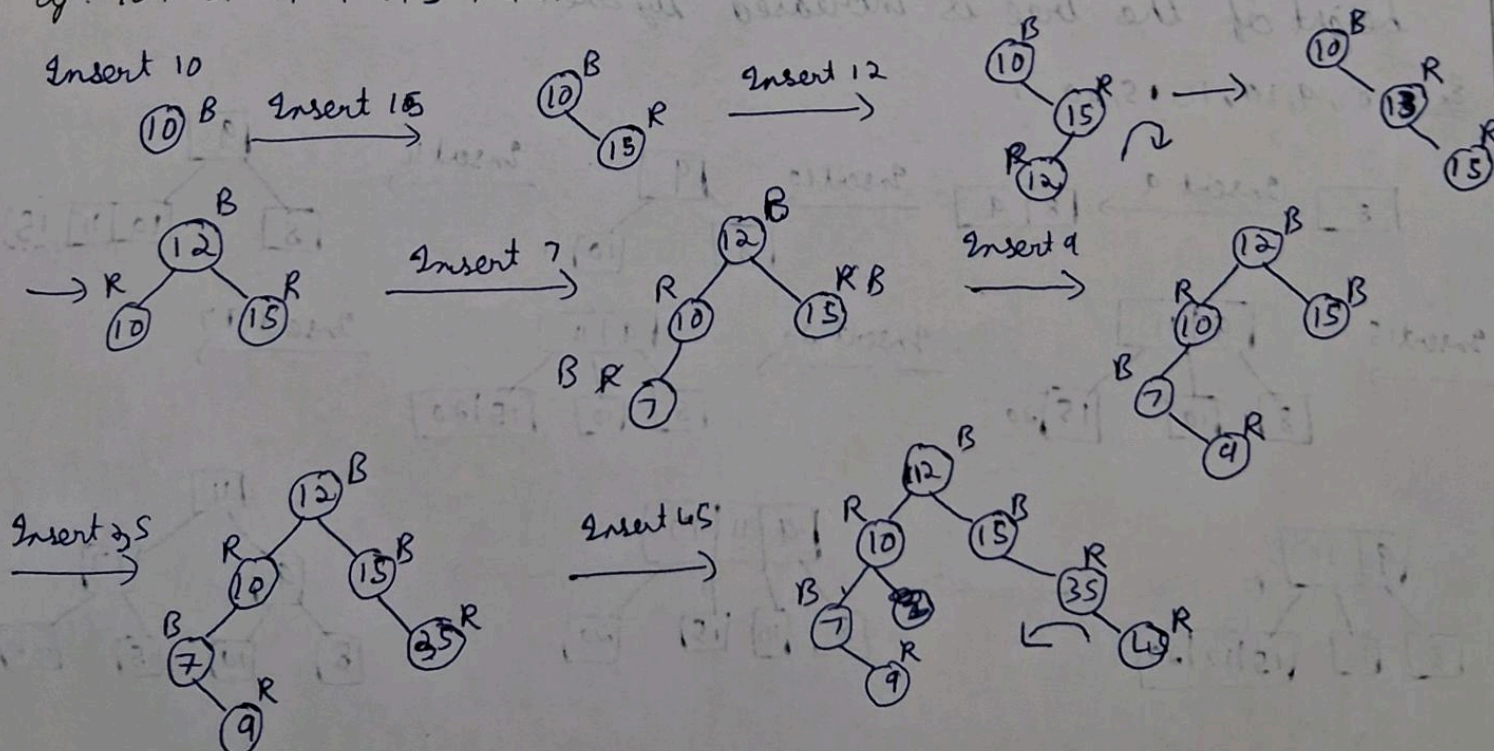 Insert 10
10 B
Insert 15
10 B
15 R
Insert 12
10 B
15 R
R 12
10 B
R
15 R
12 B
R 10
15 R
Insert 7
12 B
R 10
15 R B
B R 7
Insert 9
12 B
R 10
15 B
B 7
9 R
Insert 35
12 B
R 10
15 B
B 7
35 R
9 R
Insert 45
12 B
R 10
15 B
B 7
35 R
9 R
R